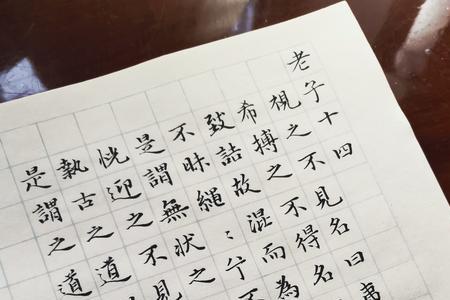 老子十四
視之不見名曰
希搏之不得名
致詰故混而為
不昧繩：兮
是謂無狀之
恍迎之不見
執古之道
是謂之道